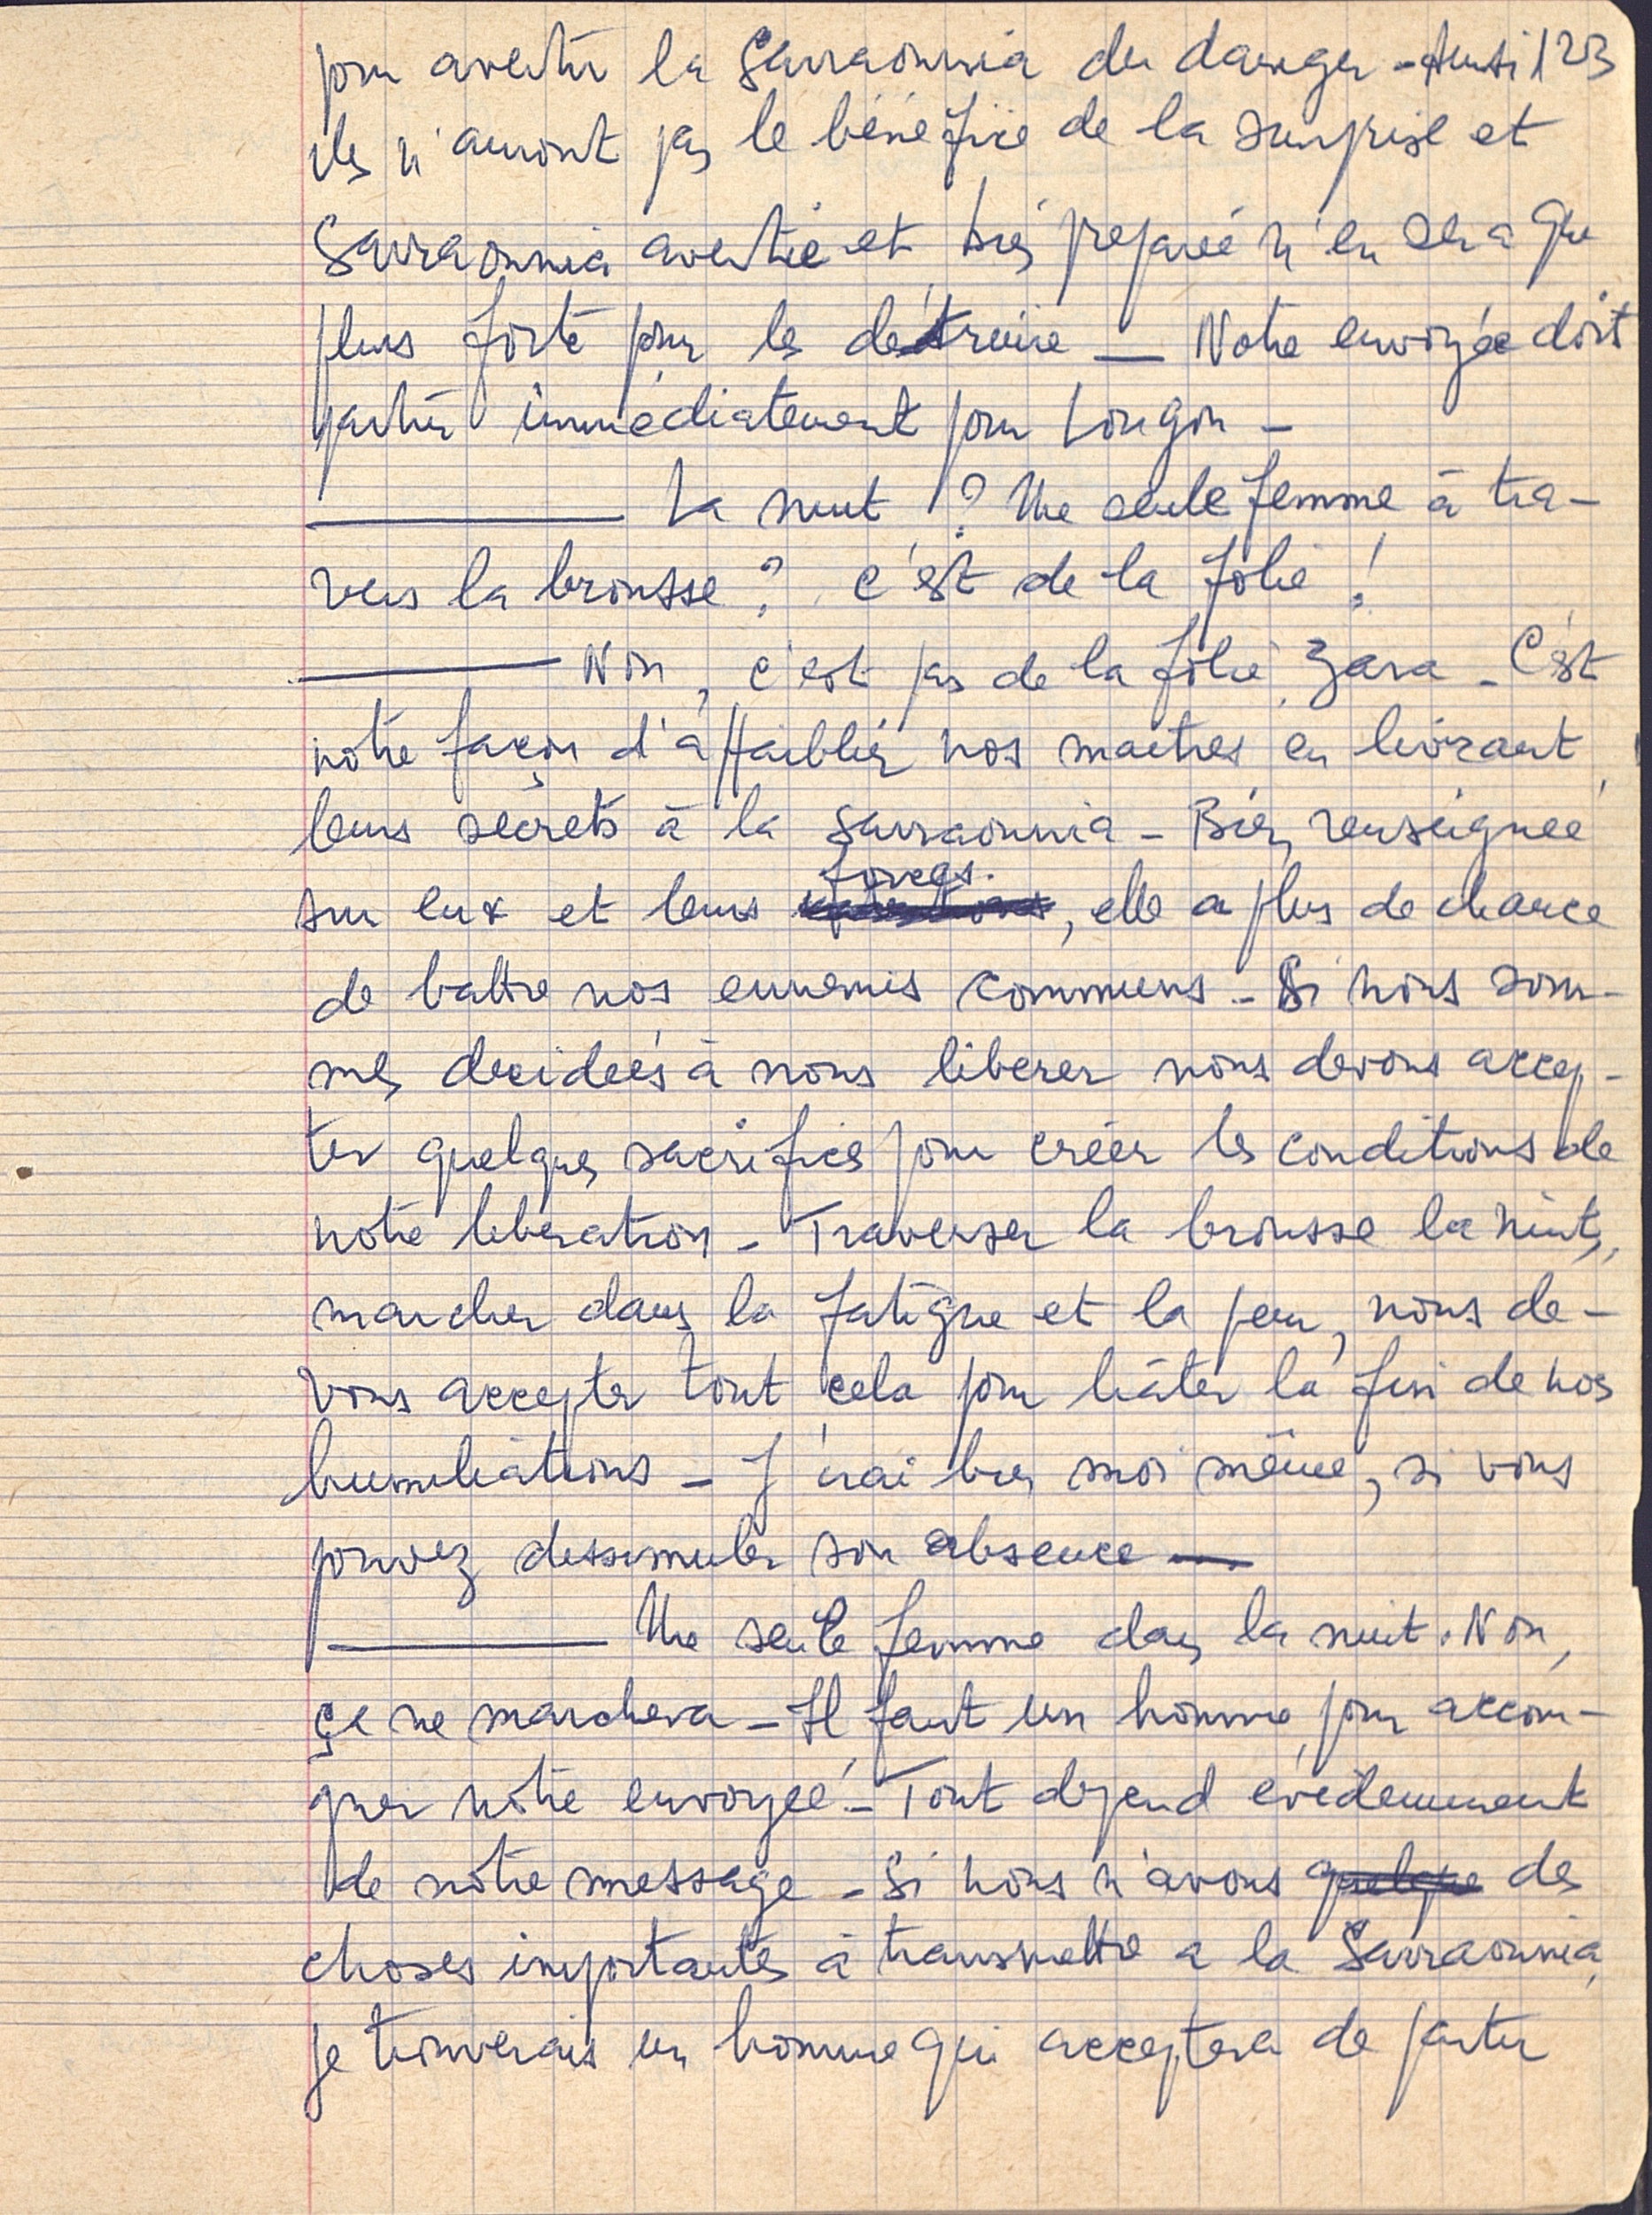 pour avertir la Sarraounia du danger - Ainsi 123
ils n'auront pas le bénéfice de la surprise et
Sarraounia avertie et bien préparée n'en sera que
plus forte pour les détruire — Notre envoyée doit
partir immédiatement pour Lougou -
— La nuit ? Une seule femme à tra-
vers la brousse ? C'est de la folie !
— Non, c'est pas de la folie, Zara - C'est
notre façon d'affaiblir nos maîtres en livrant
leurs secrets à la Sarraounia - Bien renseignée
forces.
sur eux et leurs , elle a plus de chance
de battre nos ennemis communs - Si nous som-
mes decidées à nous libérer nous devons accep-
ter quelques sacrifices pour créer les conditions de
notre libération - Traverser la brousse la nuit,
marcher dans la fatigue et la peur, nous de-
vons accepter tout cela pour hâter la fin de nos
humiliations - J'irai bien moi même, si vous
pouvez dissimuler son absence —
— Une seule femme dans la nuit. Non,
ça ne marchera - Il faut un homme pour accom-
gner notre envoyée - Tout dépend évidemment
de notre message - Si nous n'avons quelque des
choses importantes à transmettre a la Sarraounia,
je trouverais un homme qui acceptera de partir